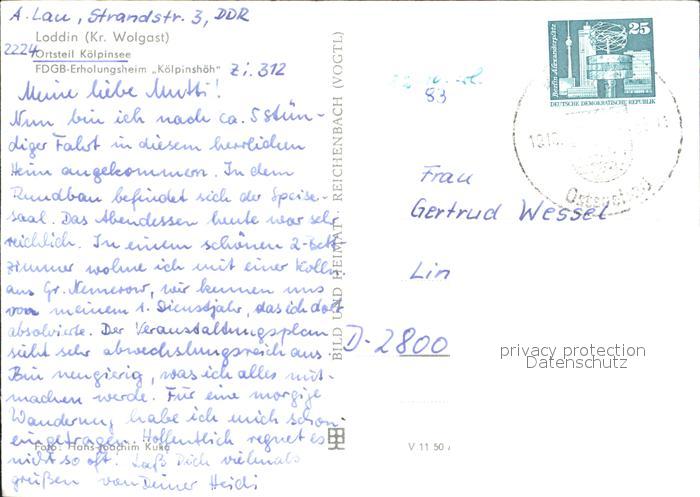 A. Lau, Strandstr. 3, DDR
Loddin (Kr. Wolgast)
2224 Ortsteil Kölpinsee
FDGB-Erholungsheim „Kölpinshöh" Zi. 312
Meine liebe Mutti!
Nun bin ich nach ca. 5 stün-
diger Fahrt in diesem herrlichen
Heim angekommen. In dem
Rundbau befindet sich der Speise-
saal. Das Abendessen heute war sehr
reichlich. In einem schönen 2-Bett
zimmer wohne ich mit einer Kolln
aus Gr. Nemerow, wir kennen uns
von meinem 1. Dienstjahr, das ich dort
absolvierte. Der Veranstaltungsplan
sieht sehr abwechslungsreich aus.
Bin neugierig, was ich alles mit-
machen werde. Für eine morgige
Wanderung habe ich mich schon
eingetragen. Hoffentlich regnet es
nicht so oft! Laß Dich vielmals
grüßen von Deiner Heidi
Foto: Hans-Joachim Kuke
BILD UND HEIMAT REICHENBACH (VOGTL)
V 11 50
83
Berlin, Alexanderplatz
25
DEUTSCHE DEMOKRATISCHE REPUBLIK
Frau
Gertrud Wessel
Lin
D-2800
privacy protection
Datenschutz